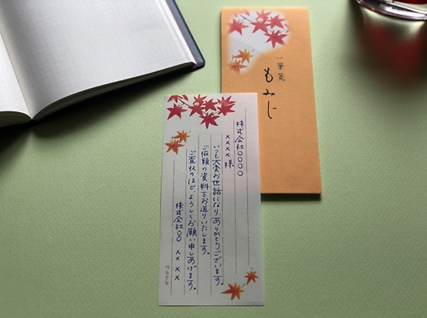 株式会社〇〇〇〇
××××様
いつも大変お世話になりありがとうございます。
ご依頼の資料をお送りいたします。
ご査収のほど、よろしくお願い申しあげます。
株式会社〇〇 ×× ××
一筆箋
もみじ